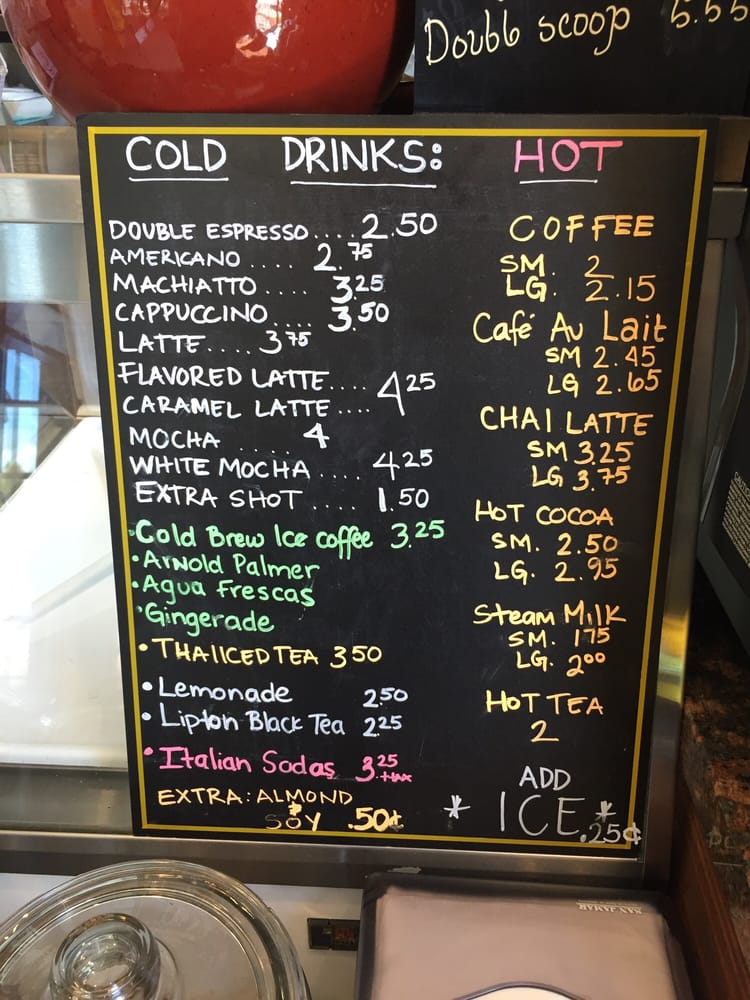 Double scoop 5.55
COLD DRINKS:
DOUBLE ESPRESSO.... 2.50
AMERICANO ..... 2.75
MACHIATTO ..... 3.25
CAPPUCCINO .... 3.50
LATTE.... 3 75
FLAVORED LATTE....
CARAMEL LATTE.... 4 25
MOCHA ..... 4
WHITE MOCHA .... 4 25
EXTRA SHOT .... 1.50
•Cold Brew Ice coffee 3.25
•Arnold Palmer
•Agua Frescas
•Gingerade
•THAI ICED TEA 3 50
•Lemonade 2.50
•Lipton Black Tea 2.25
•Italian Sodas 3.25 +tax
EXTRA: ALMOND
SOY .50¢
HOT
COFFEE
SM. 2
LG. 2.15
Café Au Lait
SM 2.45
LG 2.65
CHAI LATTE
SM 3.25
LG 3.75
HOT COCOA
SM. 2.50
LG. 2.95
Steam Milk
SM. 175
LG. 2.00
HOT TEA
2
ADD
* ICE *
.25¢